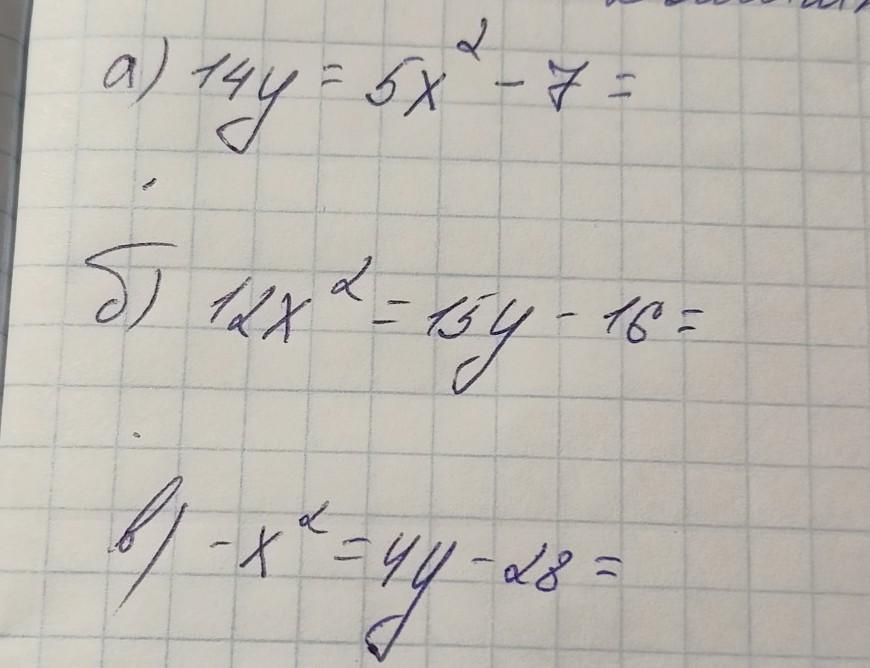 а) 14y = 5x² - 7 =
б) 12x² = 15y - 16 =
в) -x² = 4y - 28 =